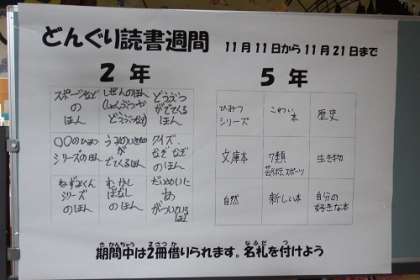 どんぐり読書週間 11月11日から11月21日まで
2年
スポーツなど
の
ほん
しぜんのほん
(しょくぶつや
どうぶつなど)
どうぶつ
がでてくる
ほん
〇〇のひみつ
シリーズのほん
うみのいきもの
が
でてくるほん
クイズ、
なぞなぞ
のほん
ねずみくん
シリーズ
のほん
むかし
ばなし
のほん
だいめいに
がついている
ほん
5年
ひみつ
シリーズ
こわい
本
歴史
文庫本
7類
芸術、スポーツ
生き物
自然
新しい本
自分の
好きな本
期間中は2冊借りられます。名札を付けよう